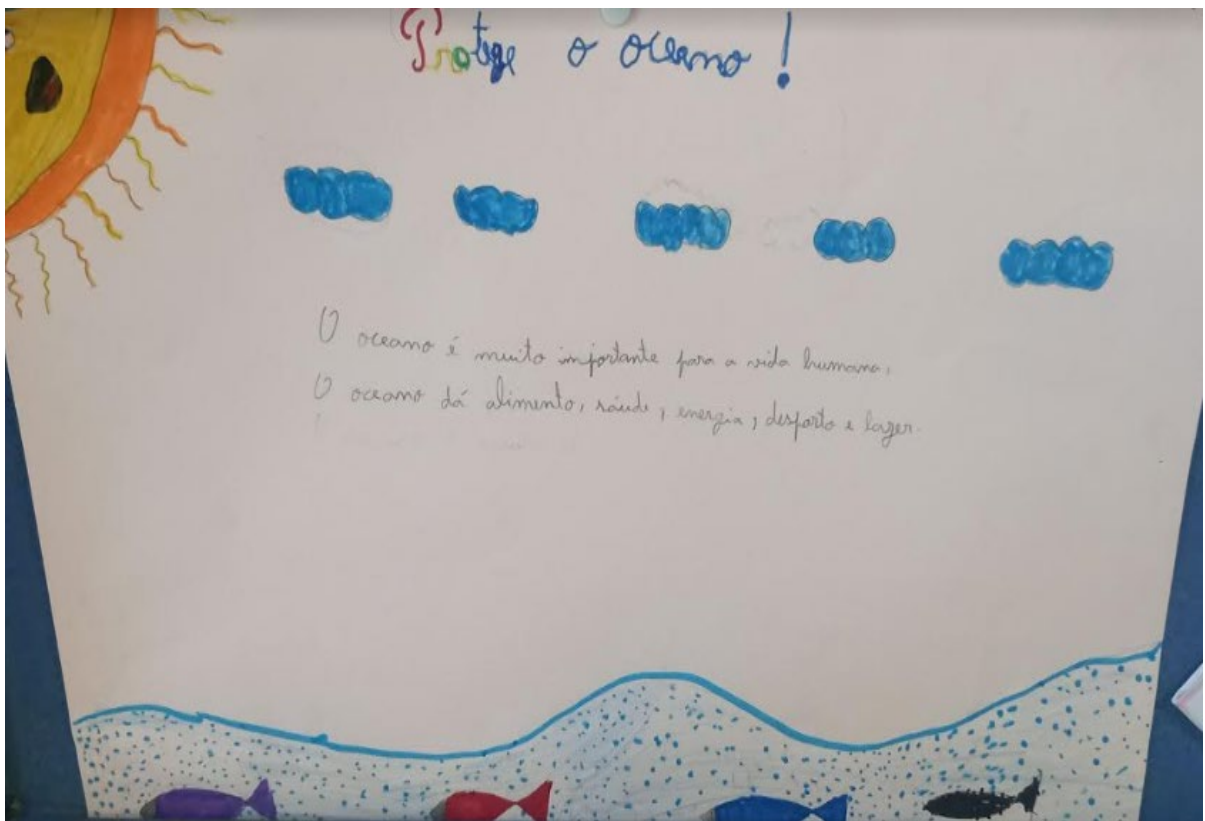 Protege o oceano!
O oceano é muito importante para a vida humana.
O oceano dá alimento, saúde, energia, desporto e lazer.